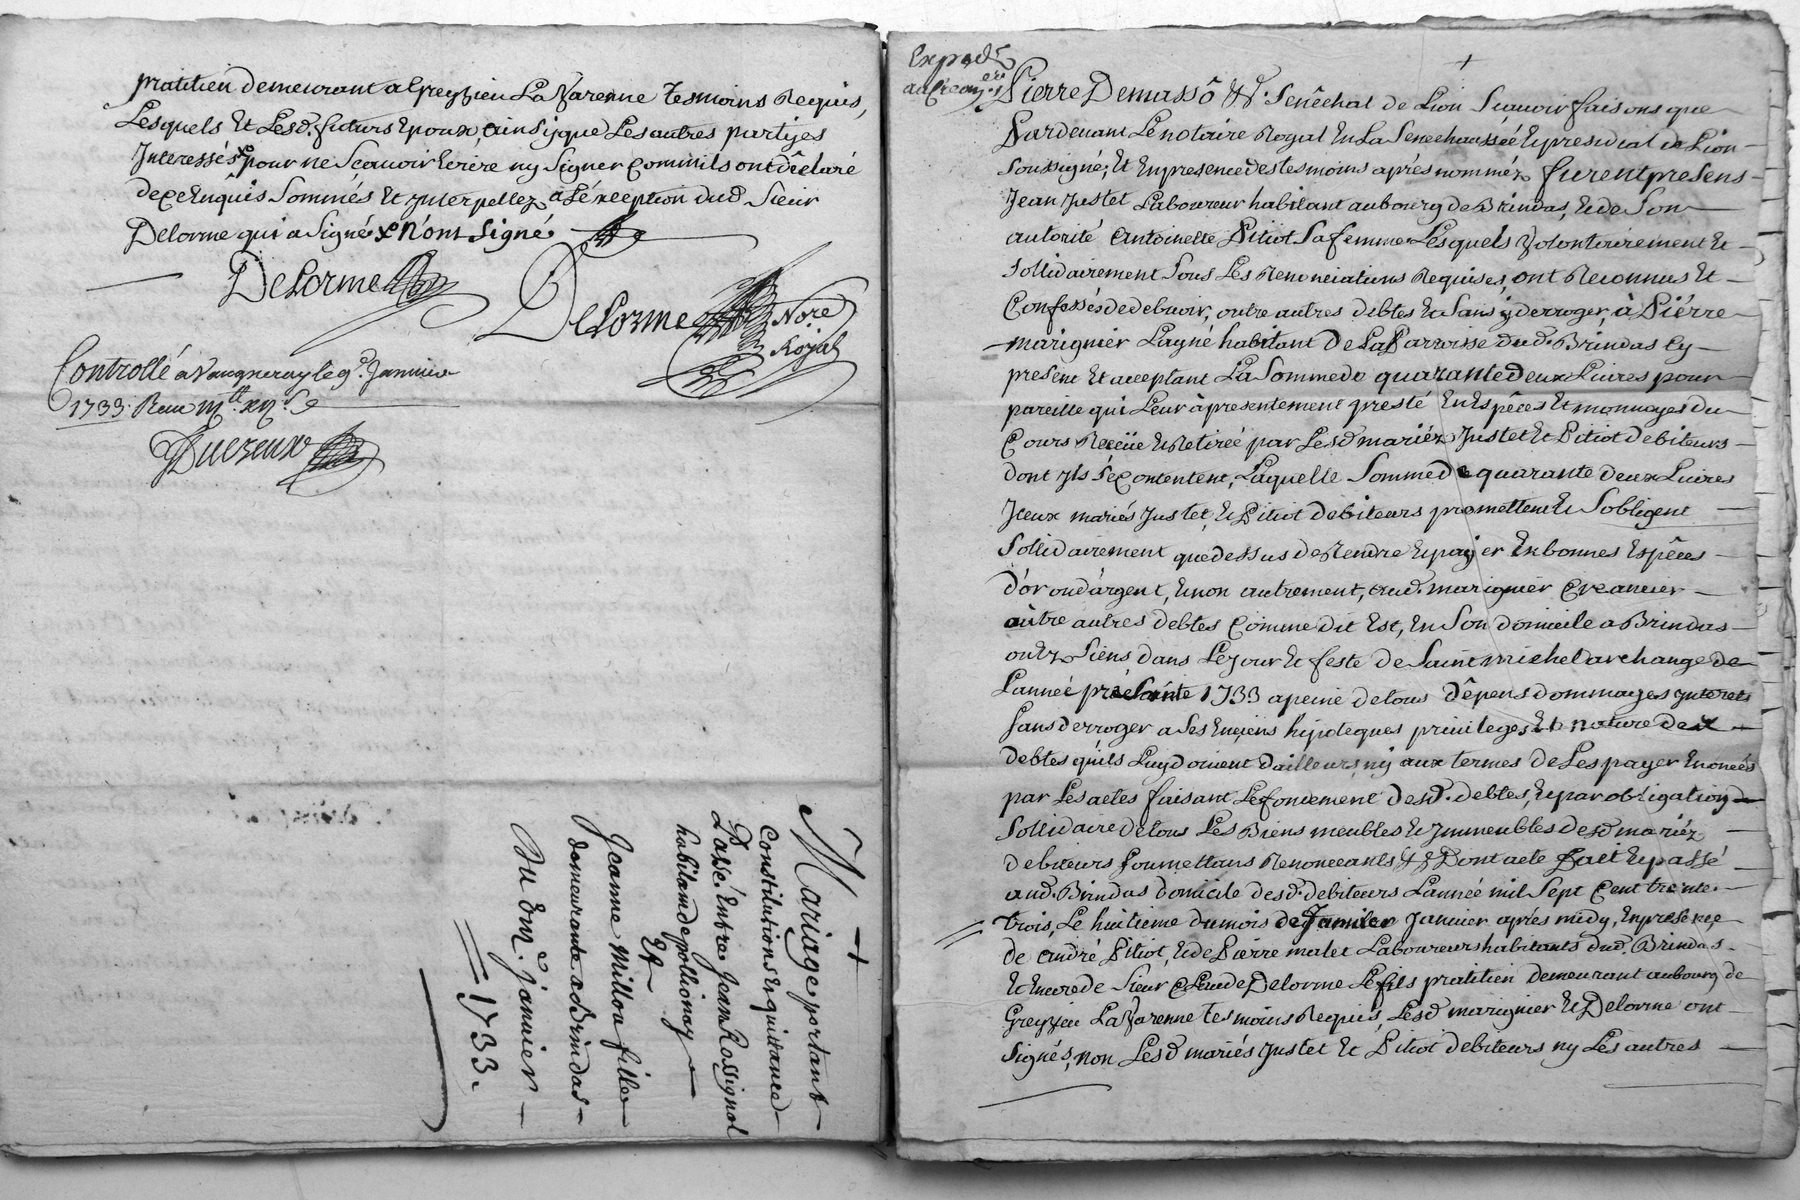 pratitien demeurant a Greyzieu La Varenne tesmoins Requis,
Lesquels Et Lesd. futurs Epoux, ainsy que Les autres partyes
Interessés pour ne Scauoir Ecrire ny Signer Comm'ils ont déclaré
de ce Enquis Sommés Et interpellez, a L'éxception dud. Sieur
Delorme qui a Signé & Nont Signé
Delorme
Delorme Nore. Royal
Controllé a Vaugneray le 9e. Januier
1733. Receu
Ducreux
+
Mariage portant
Constitution & quittance
De
Passé. Entre Jean Rossignol
habitand de pollionay
Et
Jeanne Millon fille
demeurante a Brindas
Du Janvier
1733.
Expedr.
au Creancier
+
Pierre Demasso &c. Senêchal de Lion Scauoir faisons que
Pardeuant Le notaire Royal En La Senechaussée & presidial de Lion
Soussigné, Et En presence des tesmoins aprés nommés furent presens
Jean Justet Laboureur habitant au bourg de Brindas, & de Son
autorité Antoinette Pitiot Sa femme Lesquels Volontairement Et
Sollidairement Sous Les Renonciations Requises, ont Reconnus Et
Confessés de debuoir, outre autres debtes Et Sans y derroger, à Pierre
marignier L'ayné habitant De La Parroisse dud. Brindas Cy
present Et acceptant La Somme de quarante deux Liures pour
pareille qui Leur à presentement presté En Espêces Et monnoyes du
Cours Receüe & Retirée par Lesd mariéz Justet Et Pitiot debiteurs
dont Ils Se contentent, Laquelle Somme de quarante deux Liures
Iceux mariés Justet, & Pitiot debiteurs promettent & S'obligent
Sollidairement que dessus de Rendre & payer En bonnes Espêces
d'or ou d'argent, & non autrement, aud. marignier Creancier
outre autres debtes Comme dit Est, En Son domicile a Brindas
ou Ez Siens dans Le jour & feste de Saint michel archange de
L'année présente 1733 a peine de tous dêpens dommages interets
Sans derroger a Ses Enciens hipoteques priuileges Et nature de
debtes qu'ils Luy doivent d'ailleurs, ny aux termes de Les payer Enoncés
par Les actes faisant Le fondement desd. debtes, & par obligation
Sollidaire de tous Les Biens meubles & Immeubles desd mariéz
debiteurs Soumettans Renonceants &c. Dont acte Fait & passé
aud. Brindas domicile desd. debiteurs L'année mil Sept Cent trente
trois, Le huitieme du mois de Januier Januier aprés midy, En presence
de André Pitiot, & de Pierre malet Laboureurs habitants dud. Brindas
Et Encore de Sieur Claude Delorme Le fils pratitien demeurant au bourg de
Greyzieu La Varenne tesmoins Requis, Lesd marignier & Delorme ont
Signés, non Lesd mariés Justet Et Pitiot debiteurs ny Les autres